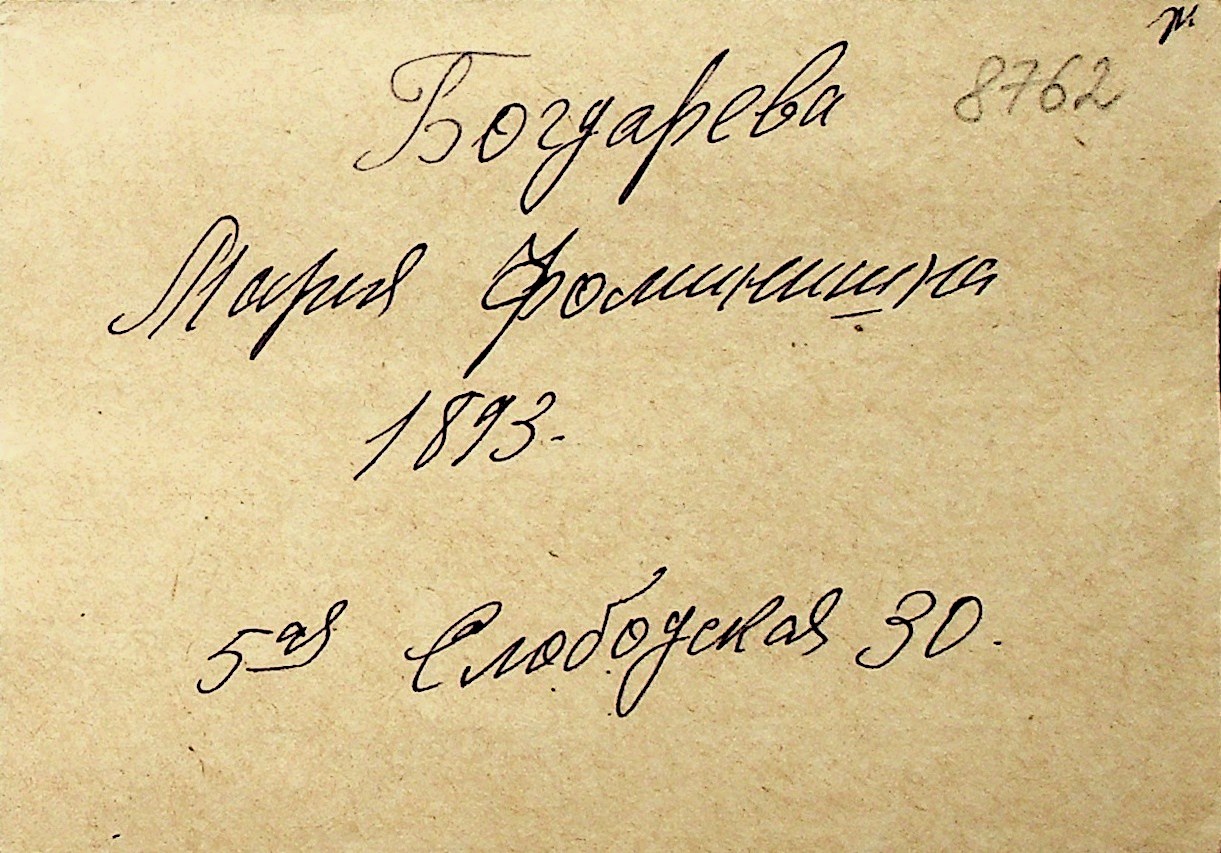 ж
8762
Богдарева
Мария Фоминишна
1893.
5ая Слободская 30.